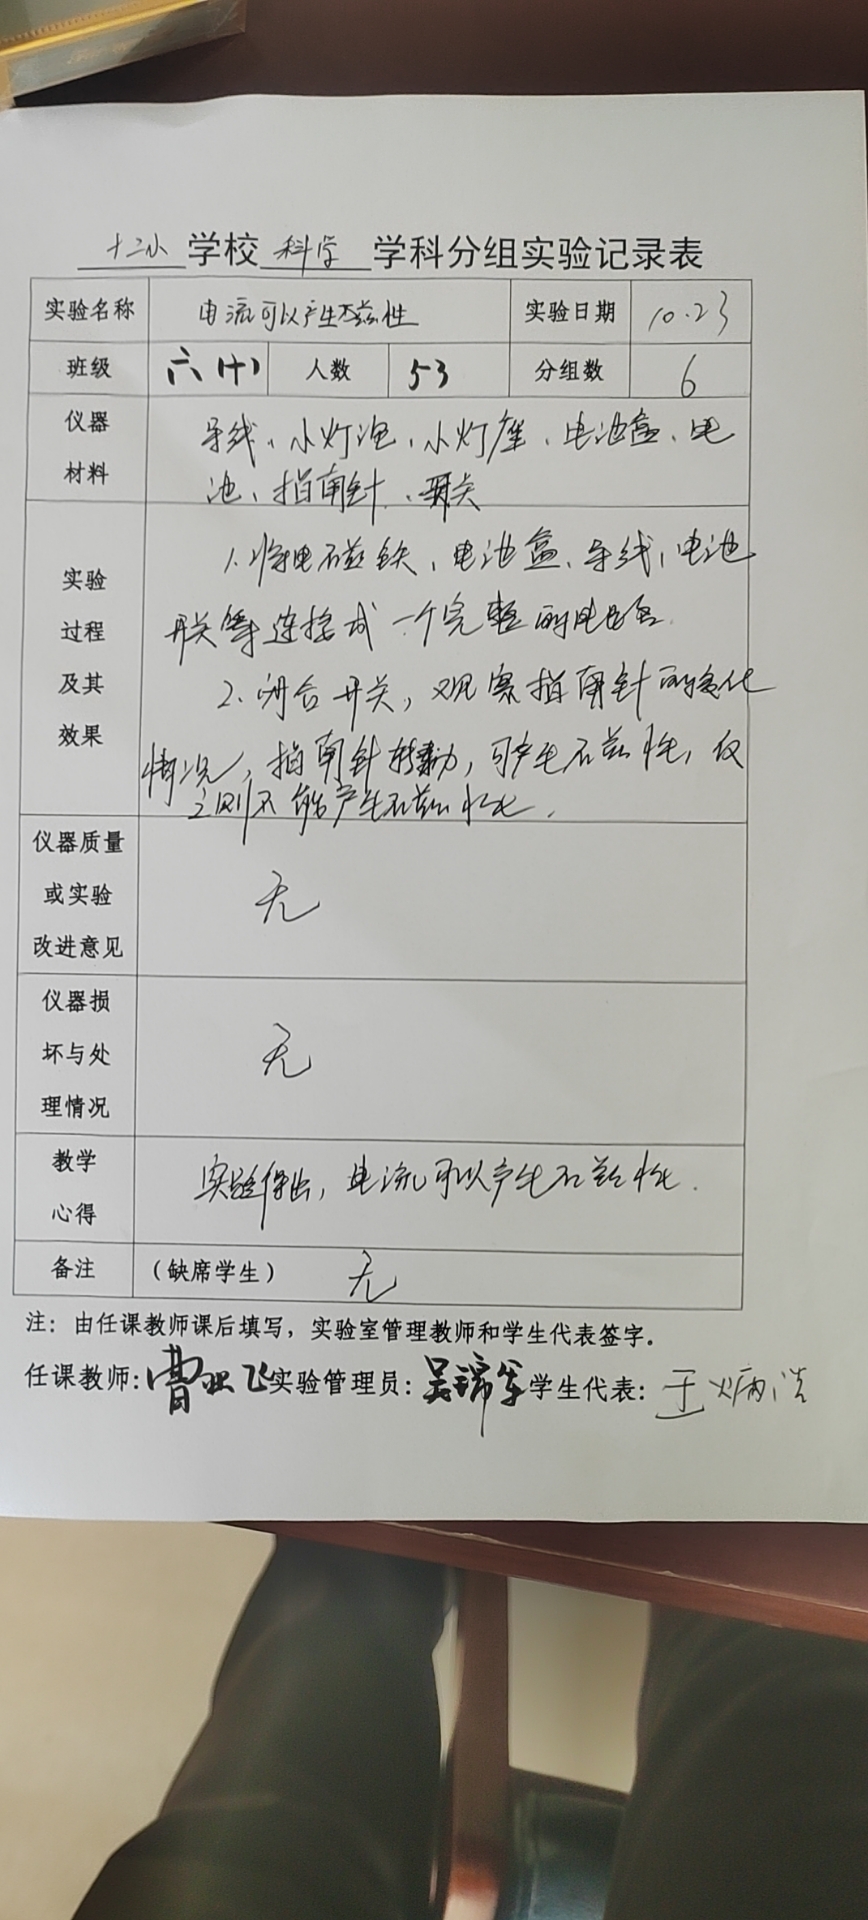 十二小学校科学学科分组实验记录表
实验名称 电流可以产生磁性 实验日期 10.23
班级 六(十) 人数 53 分组数 6
仪器材料 导线、小灯泡、小灯座、电池盒、电
池、指南针、开关
实验过程及其效果 1.将电磁铁、电池盒、导线、电池
开关等连接成一个完整的电路.
2.闭合开关,观察指南针的变化
情况,指南针转动,可产生磁性,反
之则不能产生磁性.
仪器质量或实验改进意见 无
仪器损坏与处理情况 无
教学心得 实验得出,电流可以产生磁性.
备注 (缺席学生) 无
注:由任课教师课后填写,实验室管理教师和学生代表签字。
任课教师:曹飞实验管理员:吴军学生代表:王炳浩